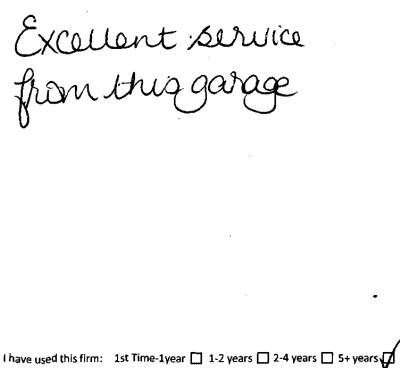 Excellent service
from this garage
I have used this firm: 1st Time-1year ☐ 1-2 years ☐ 2-4 years ☐ 5+ years ☑